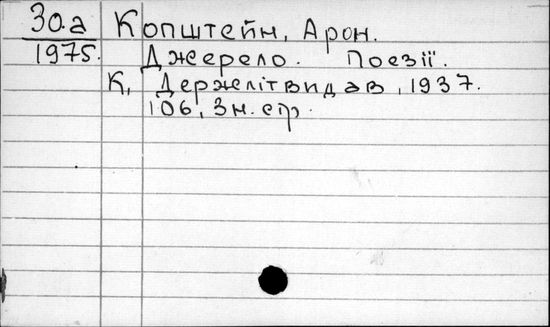 30.а Копштейн, Арон.
1975. Джерело. Поезії.
К, Держлітвидав, 1937.
106, 3 н. стр.